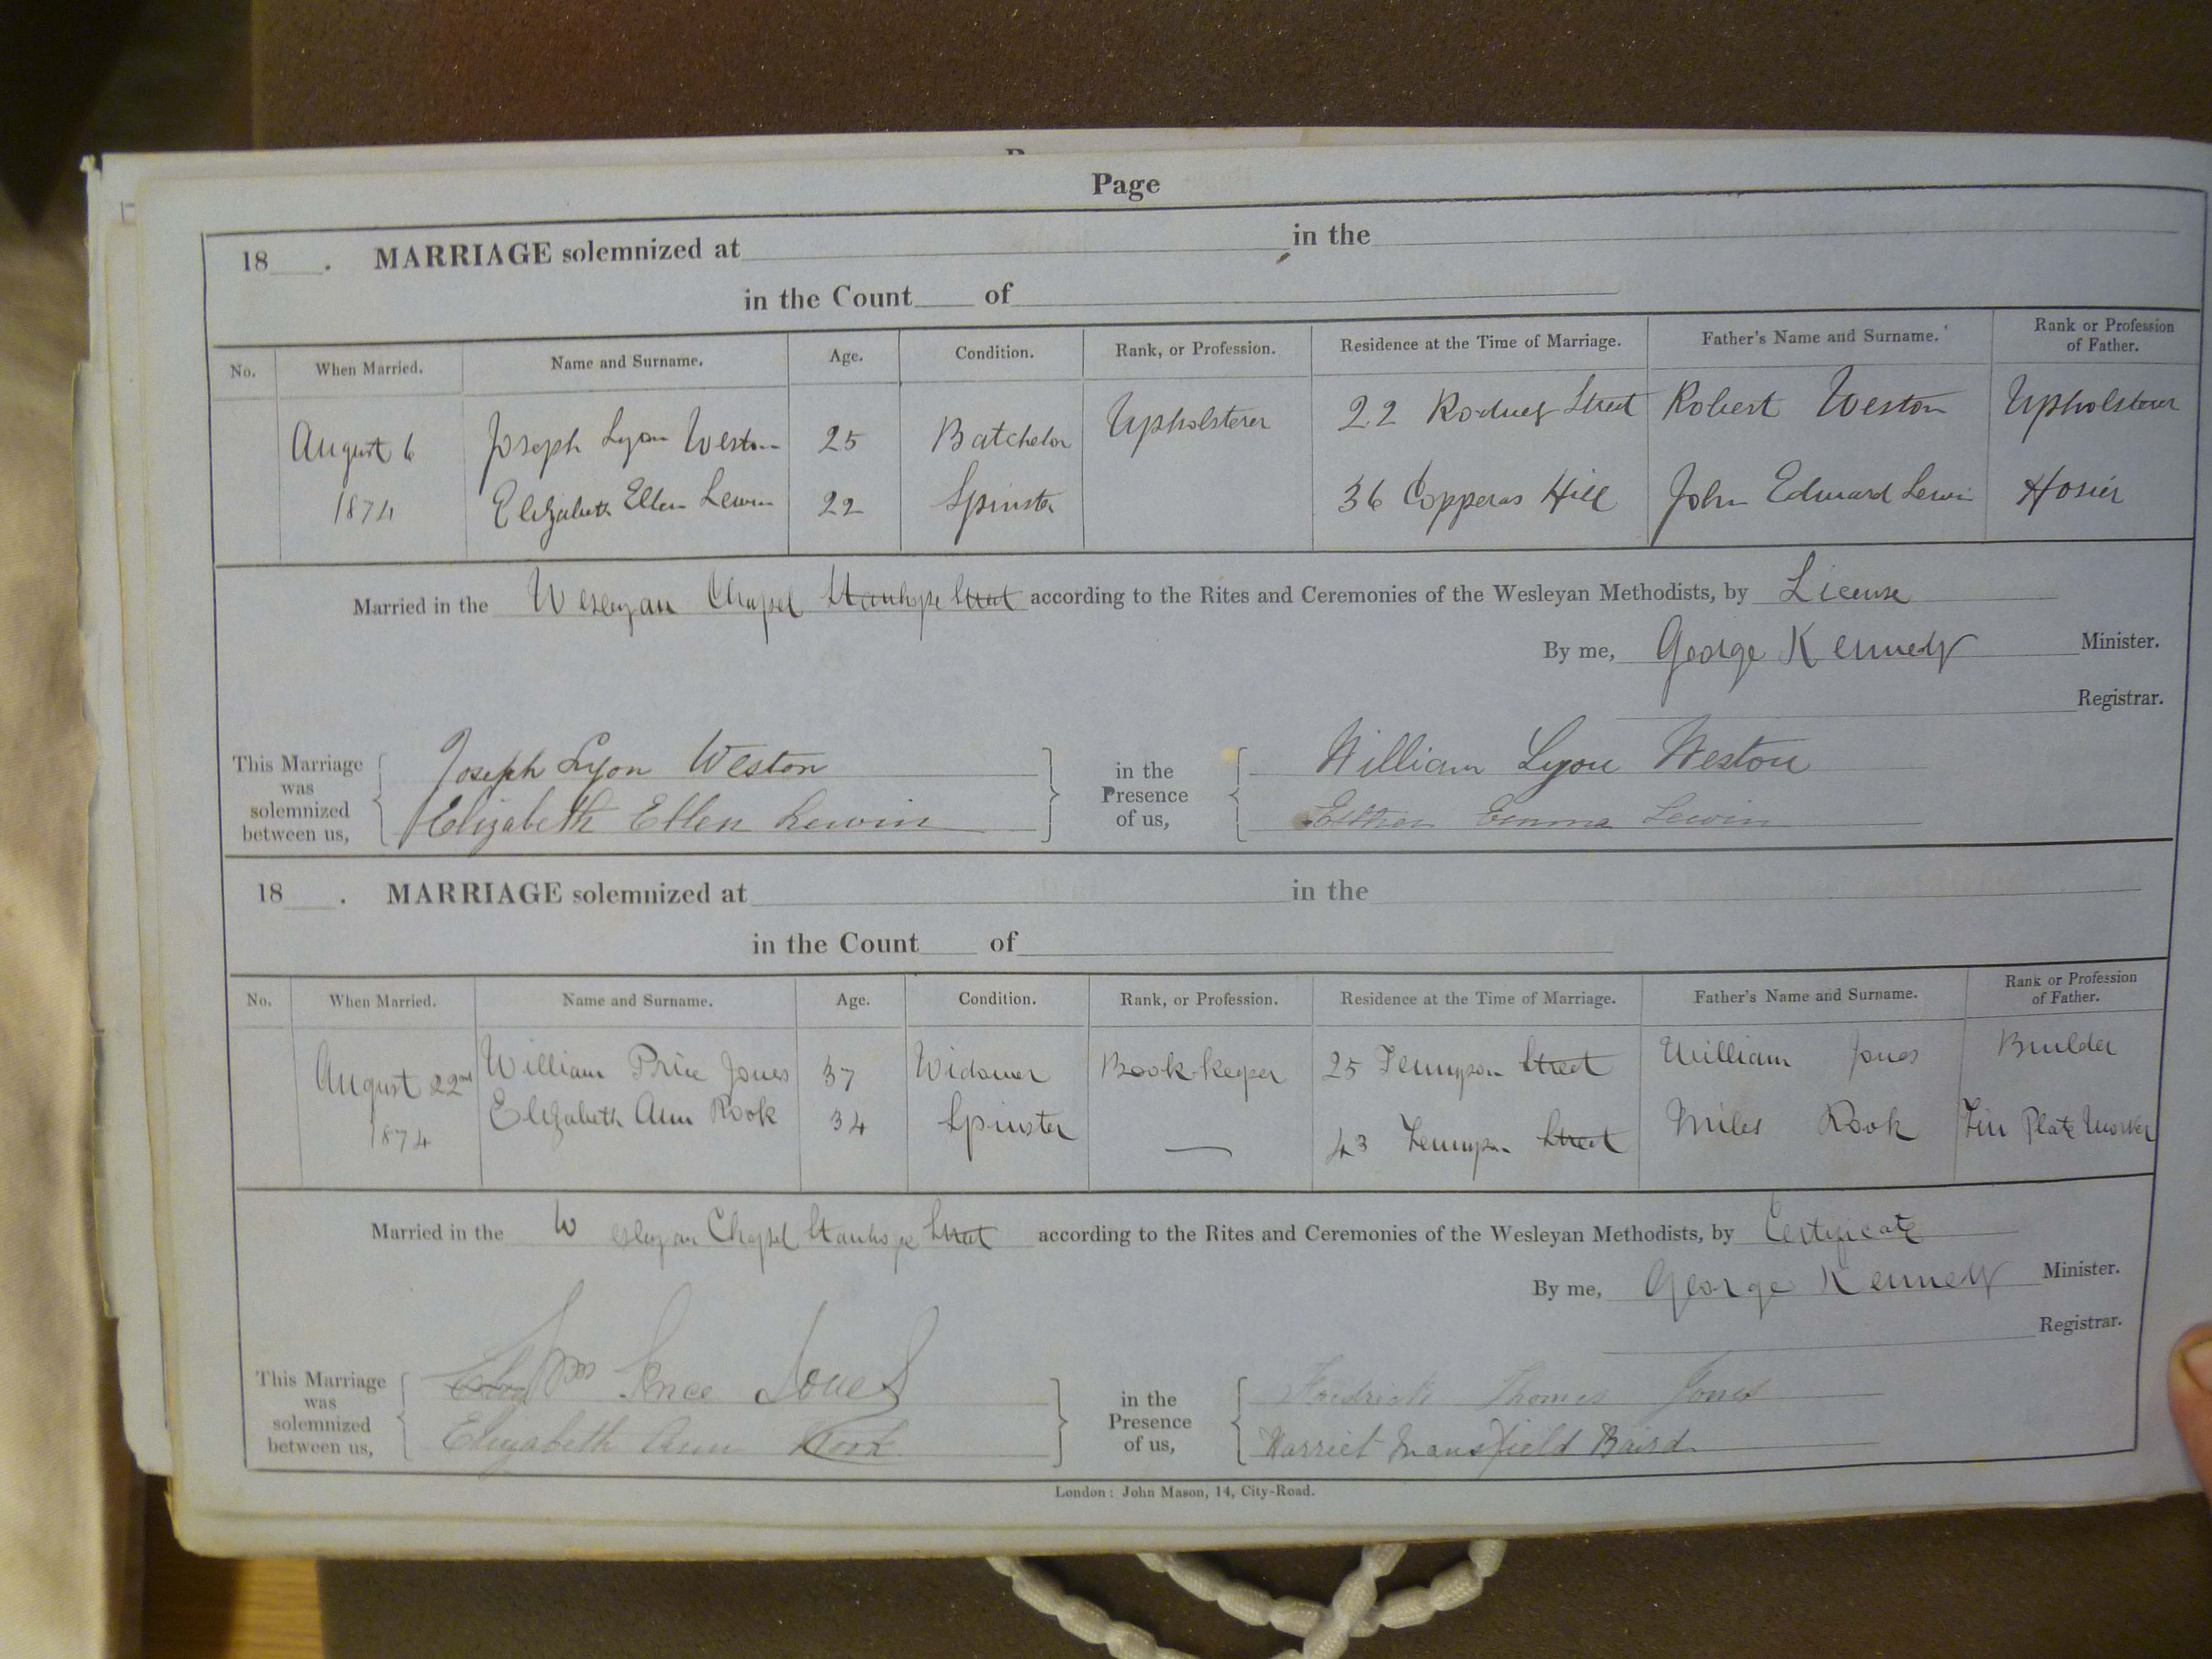 Page
18 . MARRIAGE solemnized at in the
in the Count of
No. When Married. Name and Surname. Age. Condition. Rank, or Profession. Residence at the Time of Marriage. Father's Name and Surname. Rank or Profession of Father.
August 6 Joseph Lyon Weston 25 Batchelor Upholsterer 22 Rodney Street Robert Weston Upholsterer
1874 Elizabeth Ellen Lewin 22 Spinster 36 Copperas Hill John Edward Lewin Hosier
Married in the Wesleyan Chapel Stanhope Street according to the Rites and Ceremonies of the Wesleyan Methodists, by License
By me, George Kennedy Minister.
Registrar.
This Marriage was solemnized between us, Joseph Lyon Weston in the Presence of us, William Lyon Weston
Elizabeth Ellen Lewin Esther Emma Lewin
18 . MARRIAGE solemnized at in the
in the Count of
No. When Married. Name and Surname. Age. Condition. Rank, or Profession. Residence at the Time of Marriage. Father's Name and Surname. Rank or Profession of Father.
August 22nd William Price Jones 37 Widower Book-keeper 25 Tennyson Street William Jones Builder
1874 Elizabeth Ann Rook 34 Spinster — 43 Tennyson Street Miles Rook Tin Plate Worker
Married in the Wesleyan Chapel Stanhope Street according to the Rites and Ceremonies of the Wesleyan Methodists, by Certificate
By me, George Kennedy Minister.
Registrar.
This Marriage was solemnized between us, Wm Price Jones in the Presence of us, Fredrick Thomas Jones
Elizabeth Ann Rook Harriet Mansfield Baird
London: John Mason, 14, City-Road.